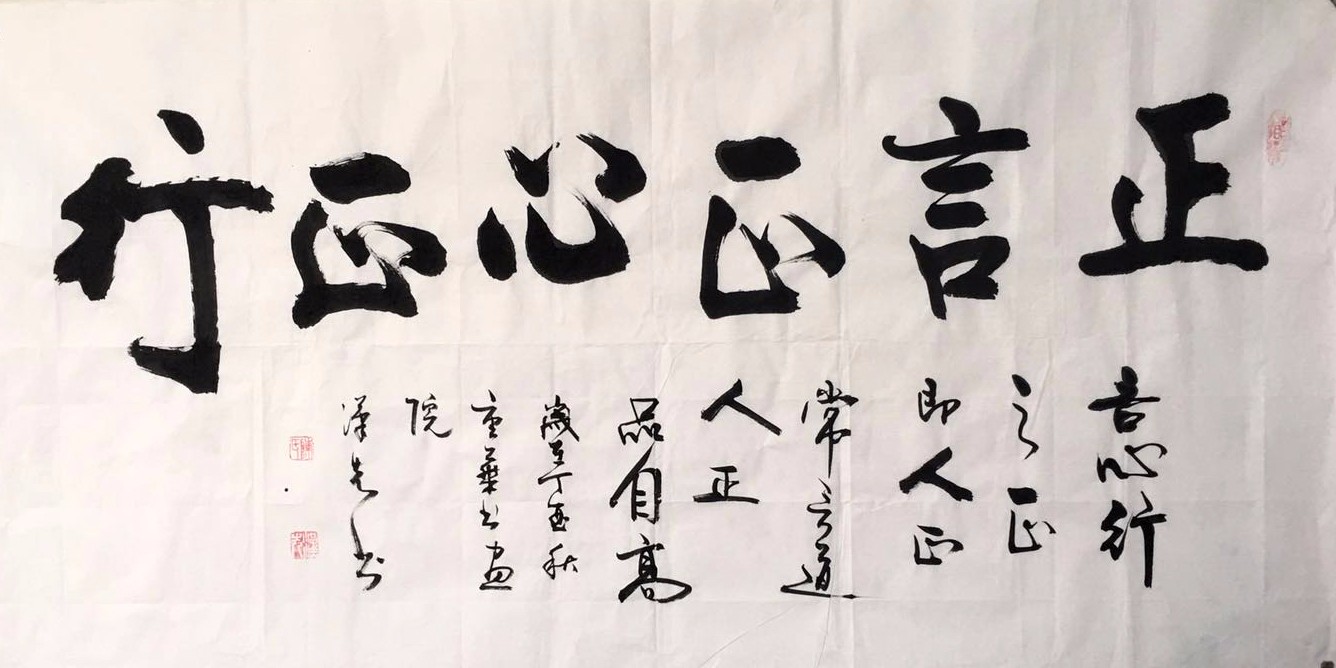 正言正心正行
言心行
之正
即人正
常言道
人正
品自高
歲在丁酉秋
華书画
院
先书